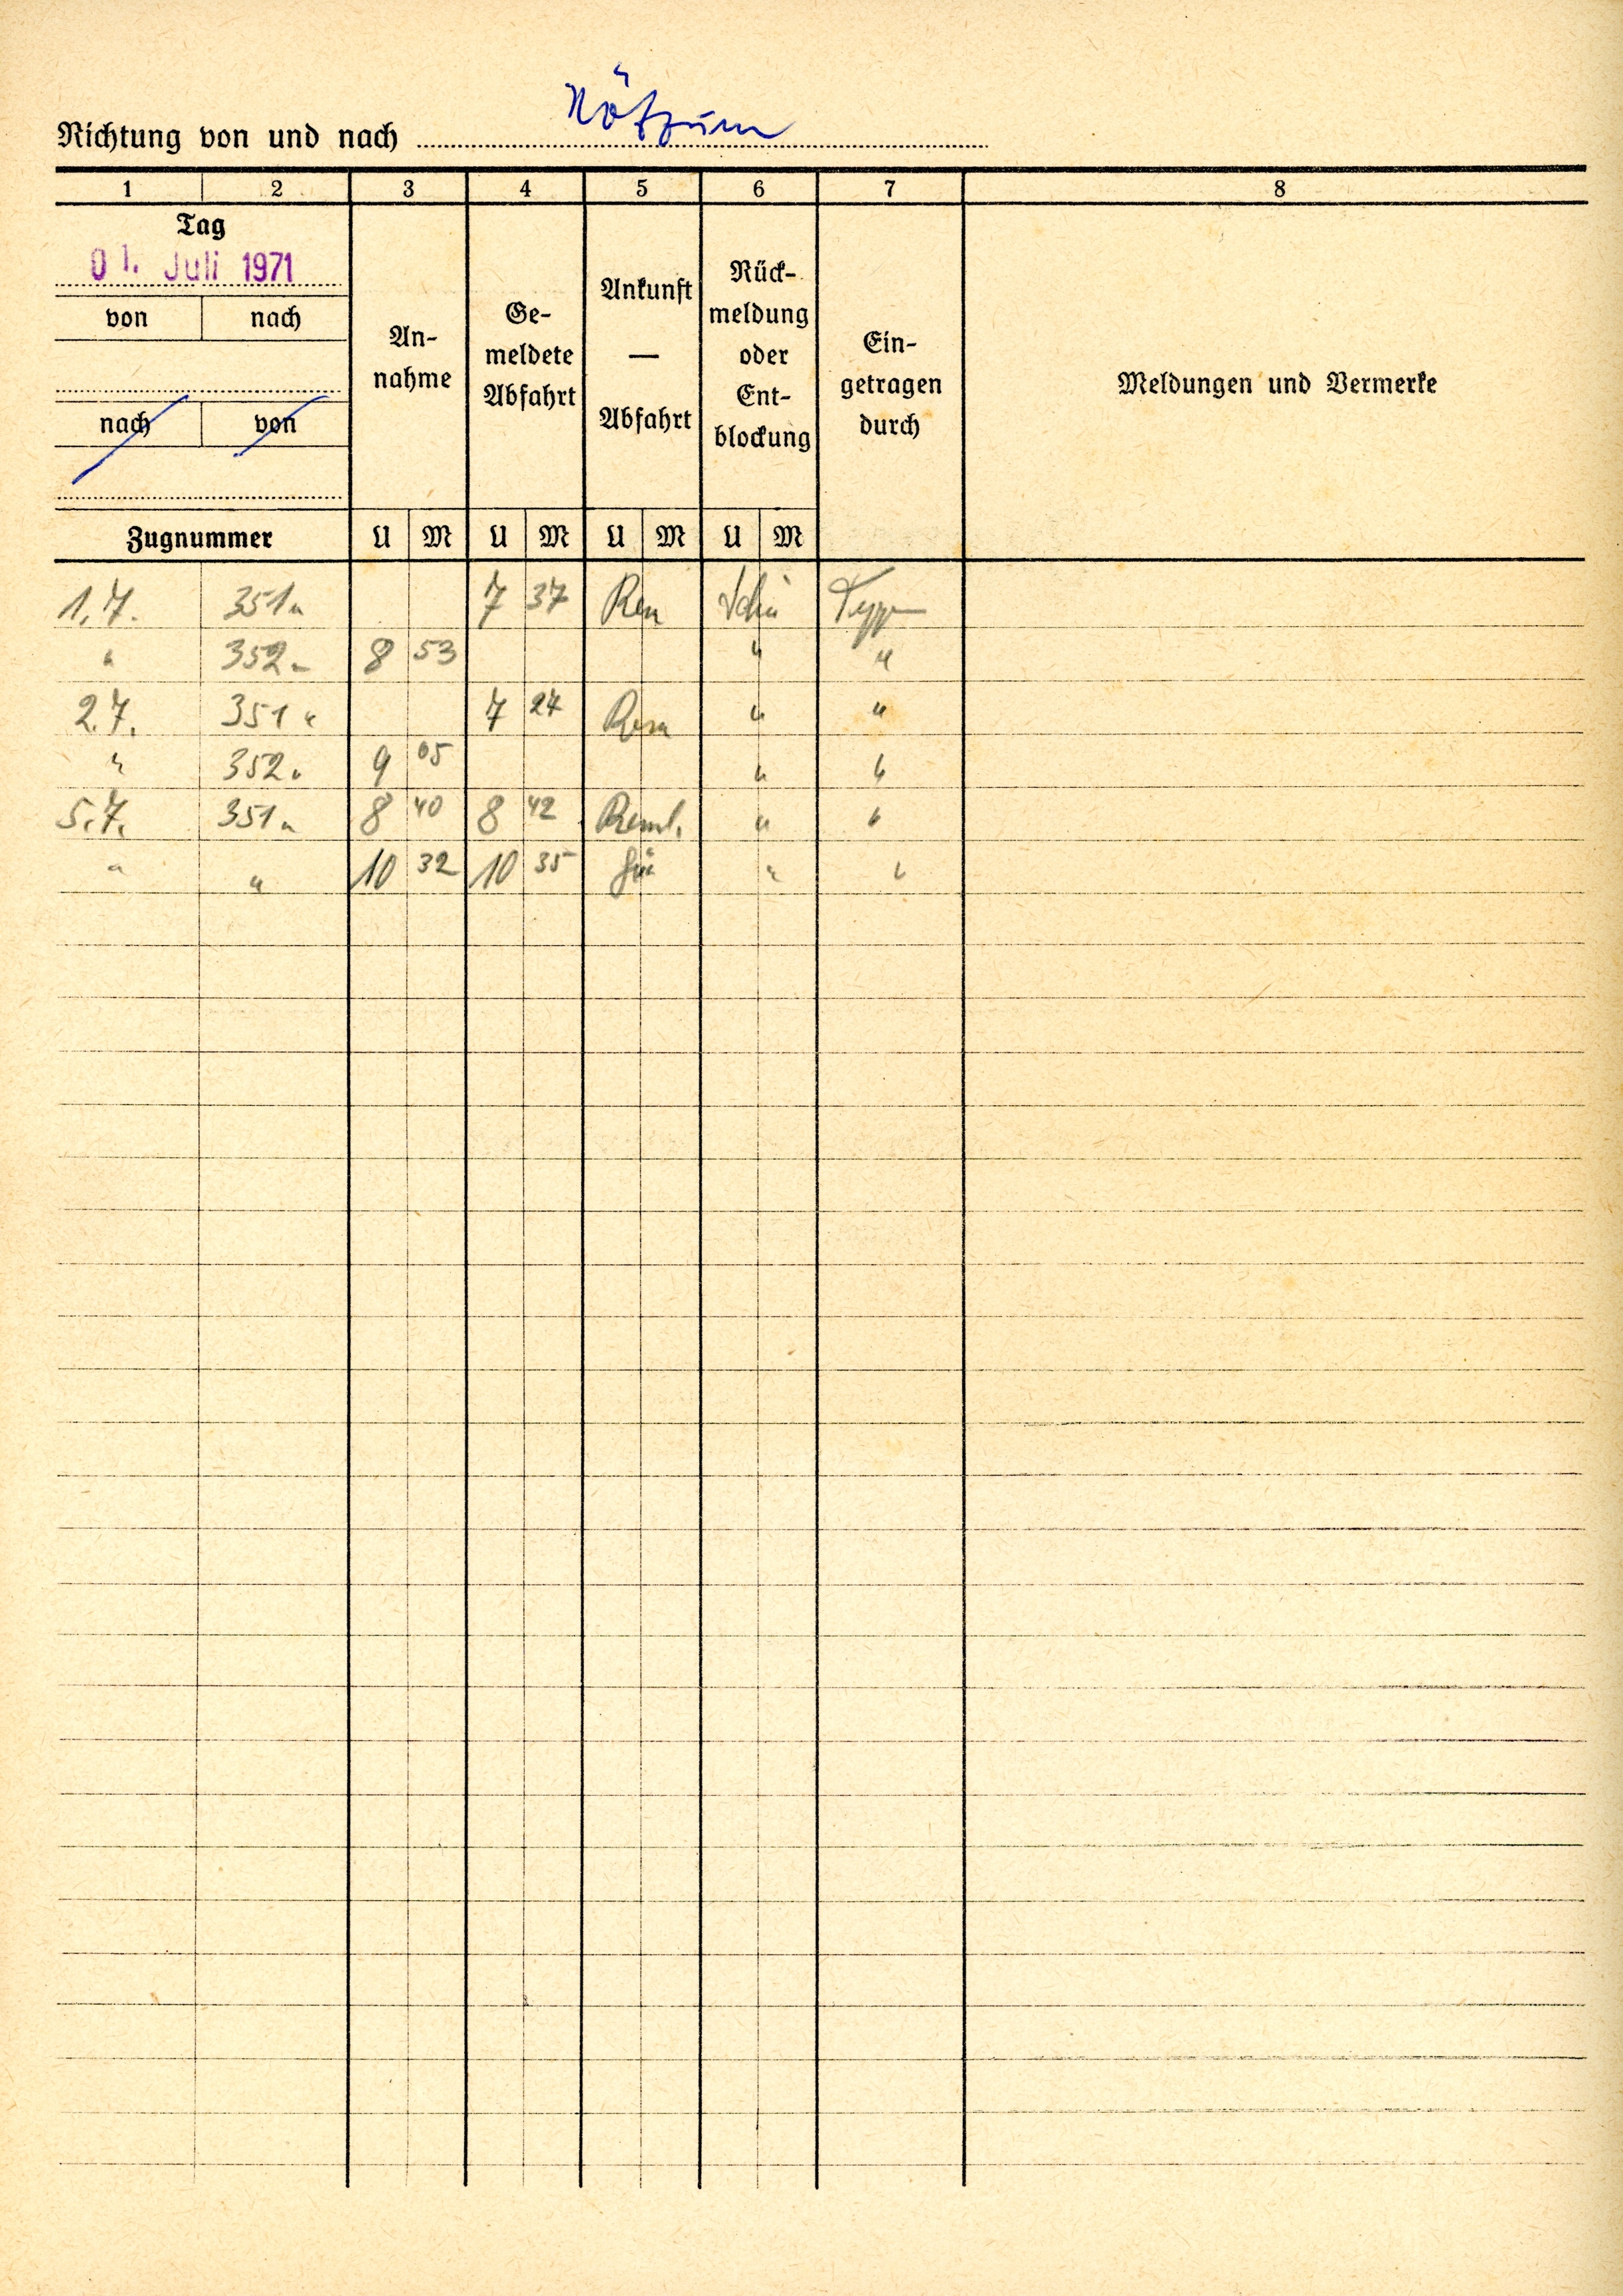 Richtung von und nach
1 2 3 4 5 6 7 8
Tag
01. Juli 1971
von nach
nach von
Zugnummer
An-
nahme
Ge-
meldete
Abfahrt
Ankunft
—
Abfahrt
Rück-
meldung
oder
Ent-
blockung
Ein-
getragen
durch
Meldungen und Vermerke
U M U M U M U M
1.7. 351 7 37
" 352 8 53 " "
2.7. 351 7 27 " "
" 352 9 05 " "
5.7. 351 8 40 8 42 " "
" " 10 32 10 35 " "